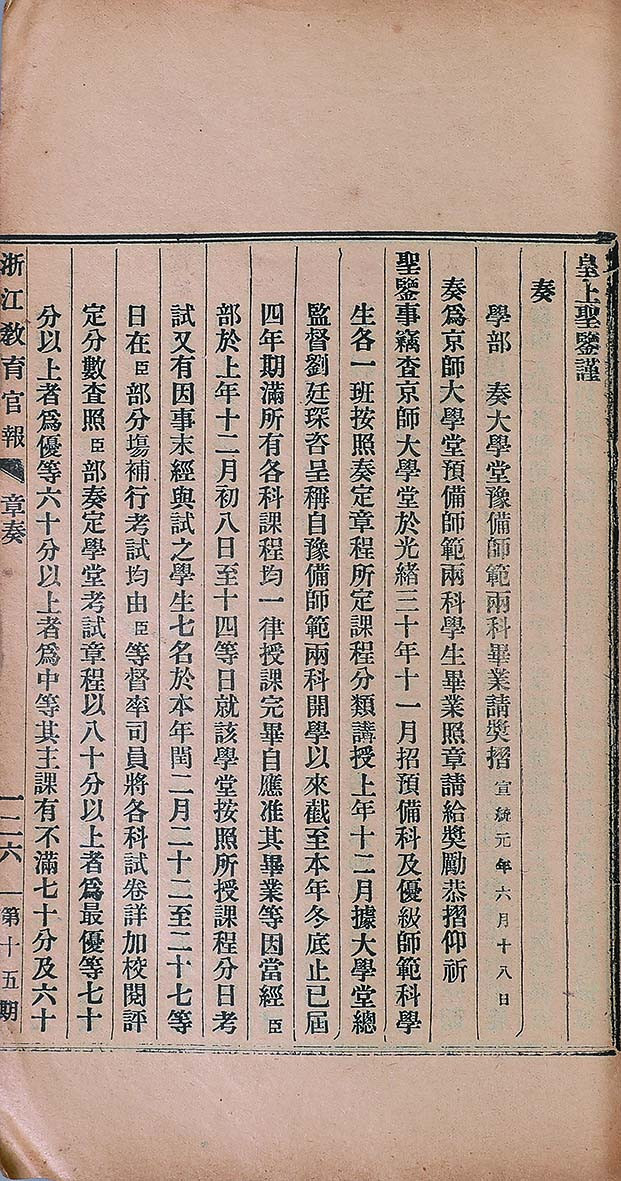 皇上聖鑒謹
奏
學部　奏大學堂豫備師範兩科畢業請奬摺 宣統元年六月十八日
奏爲京師大學堂預備師範兩科學生畢業照章請給奬勵恭摺仰祈
聖鑒事竊查京師大學堂於光緒三十年十一月招預備科及優級師範科學
生各一班按照奏定章程所定課程分類講授上年十二月據大學堂總
監督劉廷琛咨呈稱自豫備師範兩科開學以來截至本年冬底止已屆
四年期滿所有各科課程均一律授課完畢自應准其畢業等因當經臣
部於上年十二月初八日至十四等日就該學堂按照所授課程分日考
試又有因事末經與試之學生七名於本年閏二月二十二至二十七等
日在臣部分塲補行考試均由臣等督率司員將各科試卷詳加校閱評
定分數查照臣部奏定學堂考試章程以八十分以上者爲最優等七十
分以上者爲優等六十分以上者爲中等其主課有不滿七十分及六十
浙江教育官報　章奏　一二六　第十五期